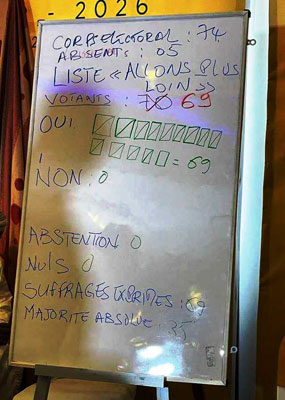 - 2026
CORPS ELECTORAL : 74
ABSENTS : 05
LISTE « ALLONS PLUS
LOIN »
VOTANTS : 70 69
OUI
= 69
NON : 0
ABSTENTION 0
NULS 0
SUFFRAGES EXPRIMES : 69
MAJORITE ABSOLUE : 35